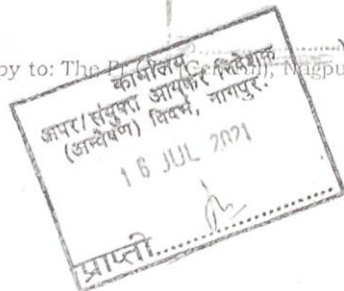 py to: The Pr. CIT (Central), Nagpu
कार्यालय
अपर/संयुक्त आयकर निदेशक
(अन्वेषण) विदर्भ, नागपुर.
16 JUL 2021
प्राप्ती